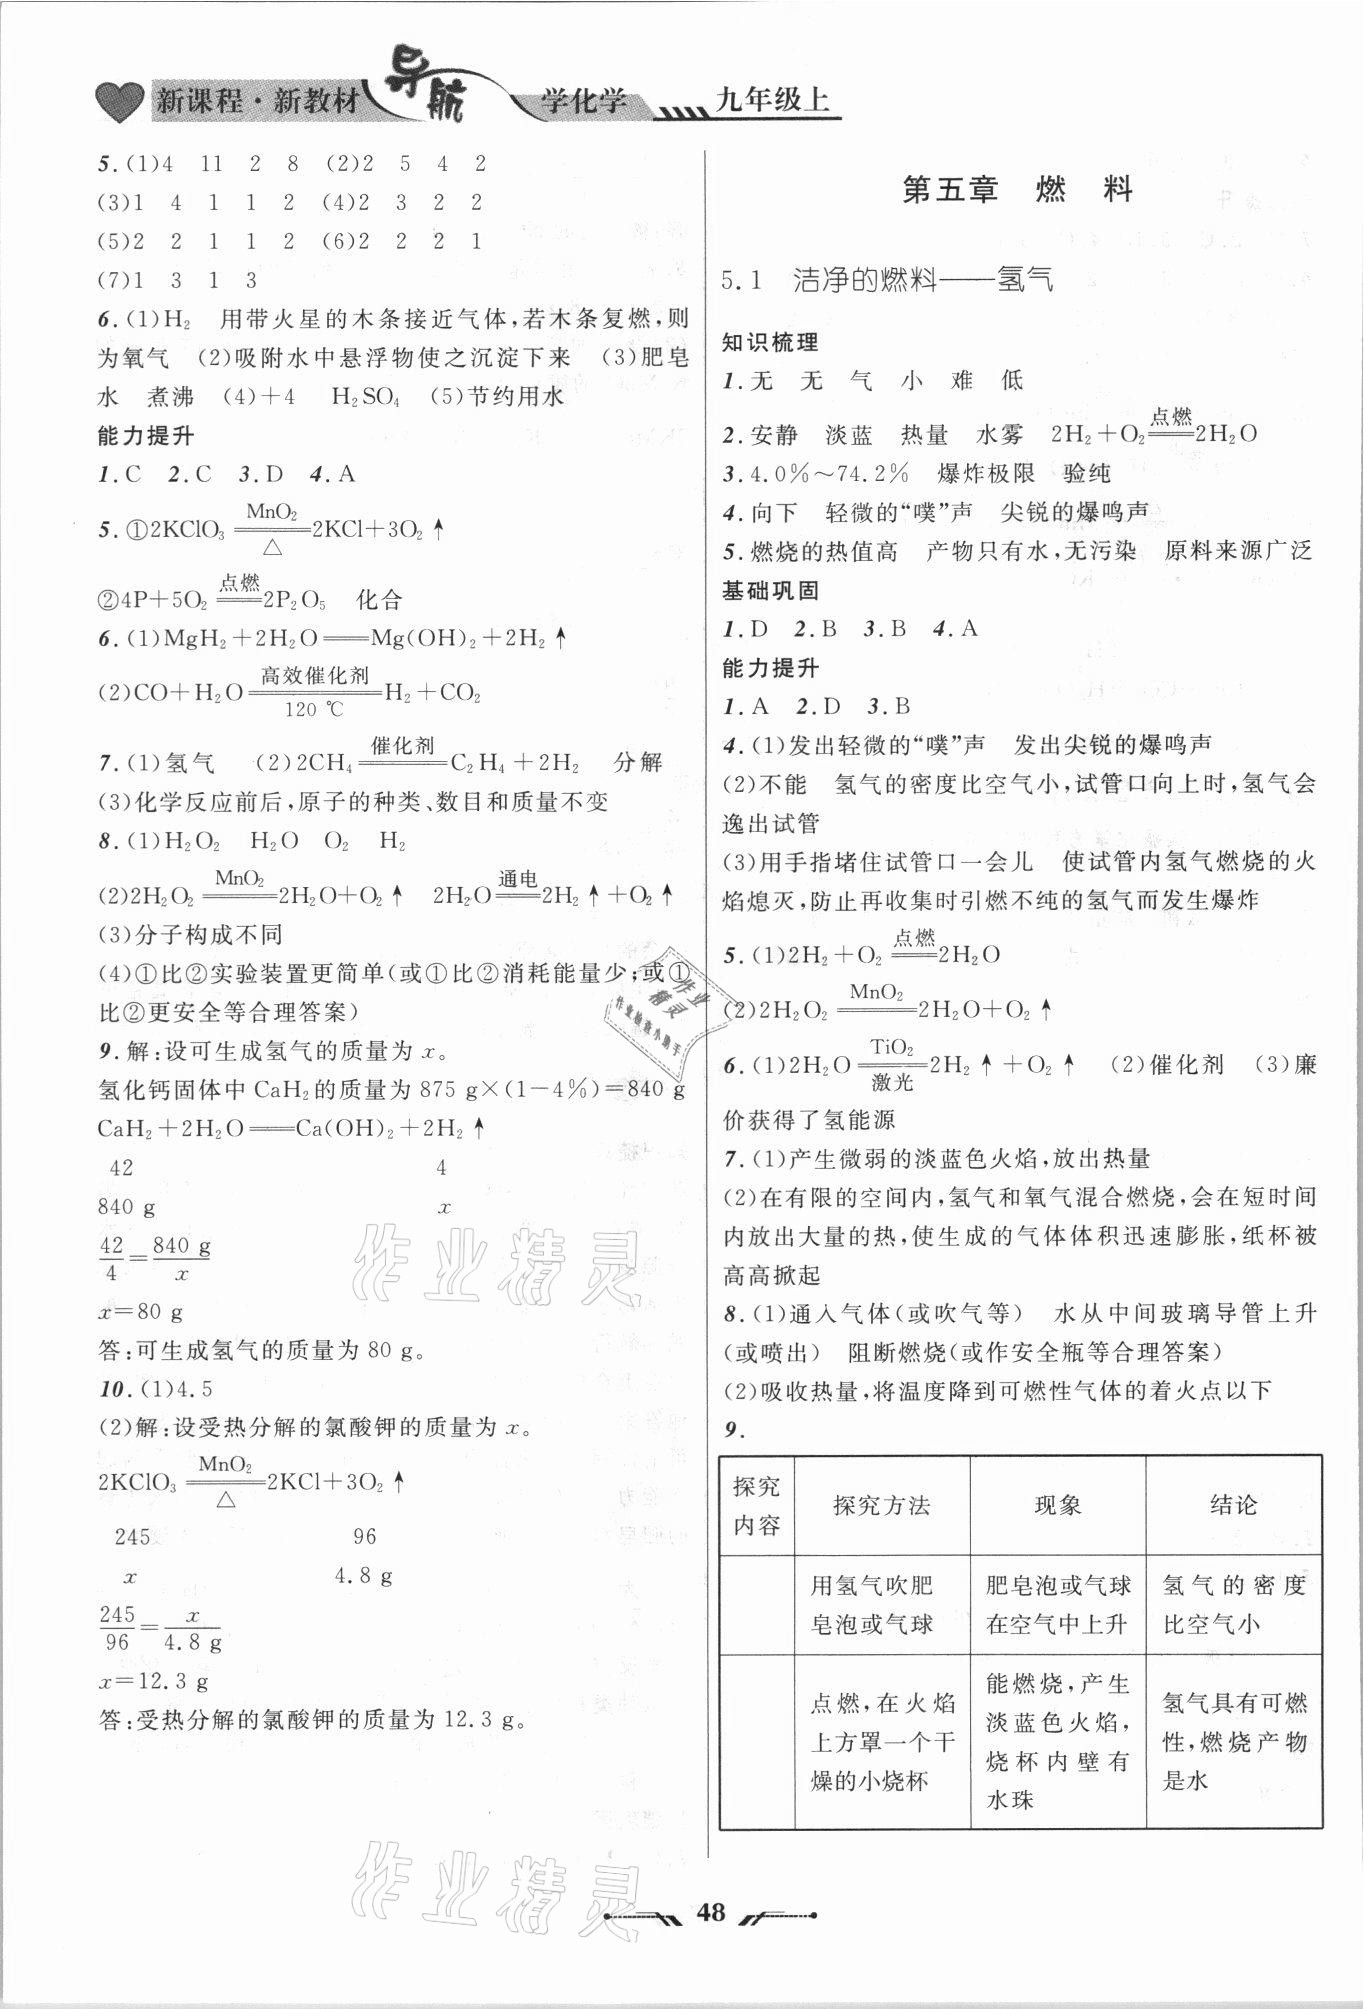 新课程·新教材 导航 学化学 九年级上
5.(1)4 11 2 8 (2)2 5 4 2
(3)1 4 1 1 2 (4)2 3 2 2
(5)2 2 1 1 2 (6)2 2 2 1
(7)1 3 1 3
6.(1)H₂ 用带火星的木条接近气体,若木条复燃,则
为氧气 (2)吸附水中悬浮物使之沉淀下来 (3)肥皂
水 煮沸 (4)+4 H₂SO₄ (5)节约用水
能力提升
1.C 2.C 3.D 4.A
MnO₂
5.①2KClO₃══2KCl+3O₂↑
△
点燃
②4P+5O₂══2P₂O₅ 化合
6.(1)MgH₂+2H₂O══Mg(OH)₂+2H₂↑
高效催化剂
(2)CO+H₂O══H₂+CO₂
120 ℃
催化剂
7.(1)氢气 (2)2CH₄══C₂H₄+2H₂ 分解
(3)化学反应前后,原子的种类、数目和质量不变
8.(1)H₂O₂ H₂O O₂ H₂
MnO₂ 通电
(2)2H₂O₂══2H₂O+O₂↑ 2H₂O══2H₂↑+O₂↑
(3)分子构成不同
(4)①比②实验装置更简单(或①比②消耗能量少;或①
比②更安全等合理答案)
9.解:设可生成氢气的质量为 x。
氢化钙固体中 CaH₂的质量为 875 g×(1-4%)=840 g
CaH₂+2H₂O══Ca(OH)₂+2H₂↑
42 4
840 g x
42/4=840 g/x
x=80 g
答:可生成氢气的质量为 80 g。
10.(1)4.5
(2)解:设受热分解的氯酸钾的质量为 x。
MnO₂
2KClO₃══2KCl+3O₂↑
△
245 96
x 4.8 g
245/96=x/4.8 g
x=12.3 g
答:受热分解的氯酸钾的质量为 12.3 g。
第五章 燃 料
5.1 洁净的燃料——氢气
知识梳理
1.无 无 气 小 难 低
点燃
2.安静 淡蓝 热量 水雾 2H₂+O₂══2H₂O
3.4.0%~74.2% 爆炸极限 验纯
4.向下 轻微的“噗”声 尖锐的爆鸣声
5.燃烧的热值高 产物只有水,无污染 原料来源广泛
基础巩固
1.D 2.B 3.B 4.A
能力提升
1.A 2.D 3.B
4.(1)发出轻微的“噗”声 发出尖锐的爆鸣声
(2)不能 氢气的密度比空气小,试管口向上时,氢气会
逸出试管
(3)用手指堵住试管口一会儿 使试管内氢气燃烧的火
焰熄灭,防止再收集时引燃不纯的氢气而发生爆炸
点燃
5.(1)2H₂+O₂══2H₂O
MnO₂
(2)2H₂O₂══2H₂O+O₂↑
TiO₂
6.(1)2H₂O══2H₂↑+O₂↑ (2)催化剂 (3)廉
激光
价获得了氢能源
7.(1)产生微弱的淡蓝色火焰,放出热量
(2)在有限的空间内,氢气和氧气混合燃烧,会在短时间
内放出大量的热,使生成的气体体积迅速膨胀,纸杯被
高高掀起
8.(1)通入气体(或吹气等) 水从中间玻璃导管上升
(或喷出) 阻断燃烧(或作安全瓶等合理答案)
(2)吸收热量,将温度降到可燃性气体的着火点以下
9.
探究
内容 探究方法 现象 结论
用氢气吹肥 肥皂泡或气球 氢气的密度
皂泡或气球 在空气中上升 比空气小
能燃烧,产生
点燃,在火焰 淡蓝色火焰, 氢气具有可燃
上方罩一个干 烧杯内壁有 性,燃烧产物
燥的小烧杯 水珠 是水
作业
精灵
作业检查小助手
作业精灵
作业精灵
48